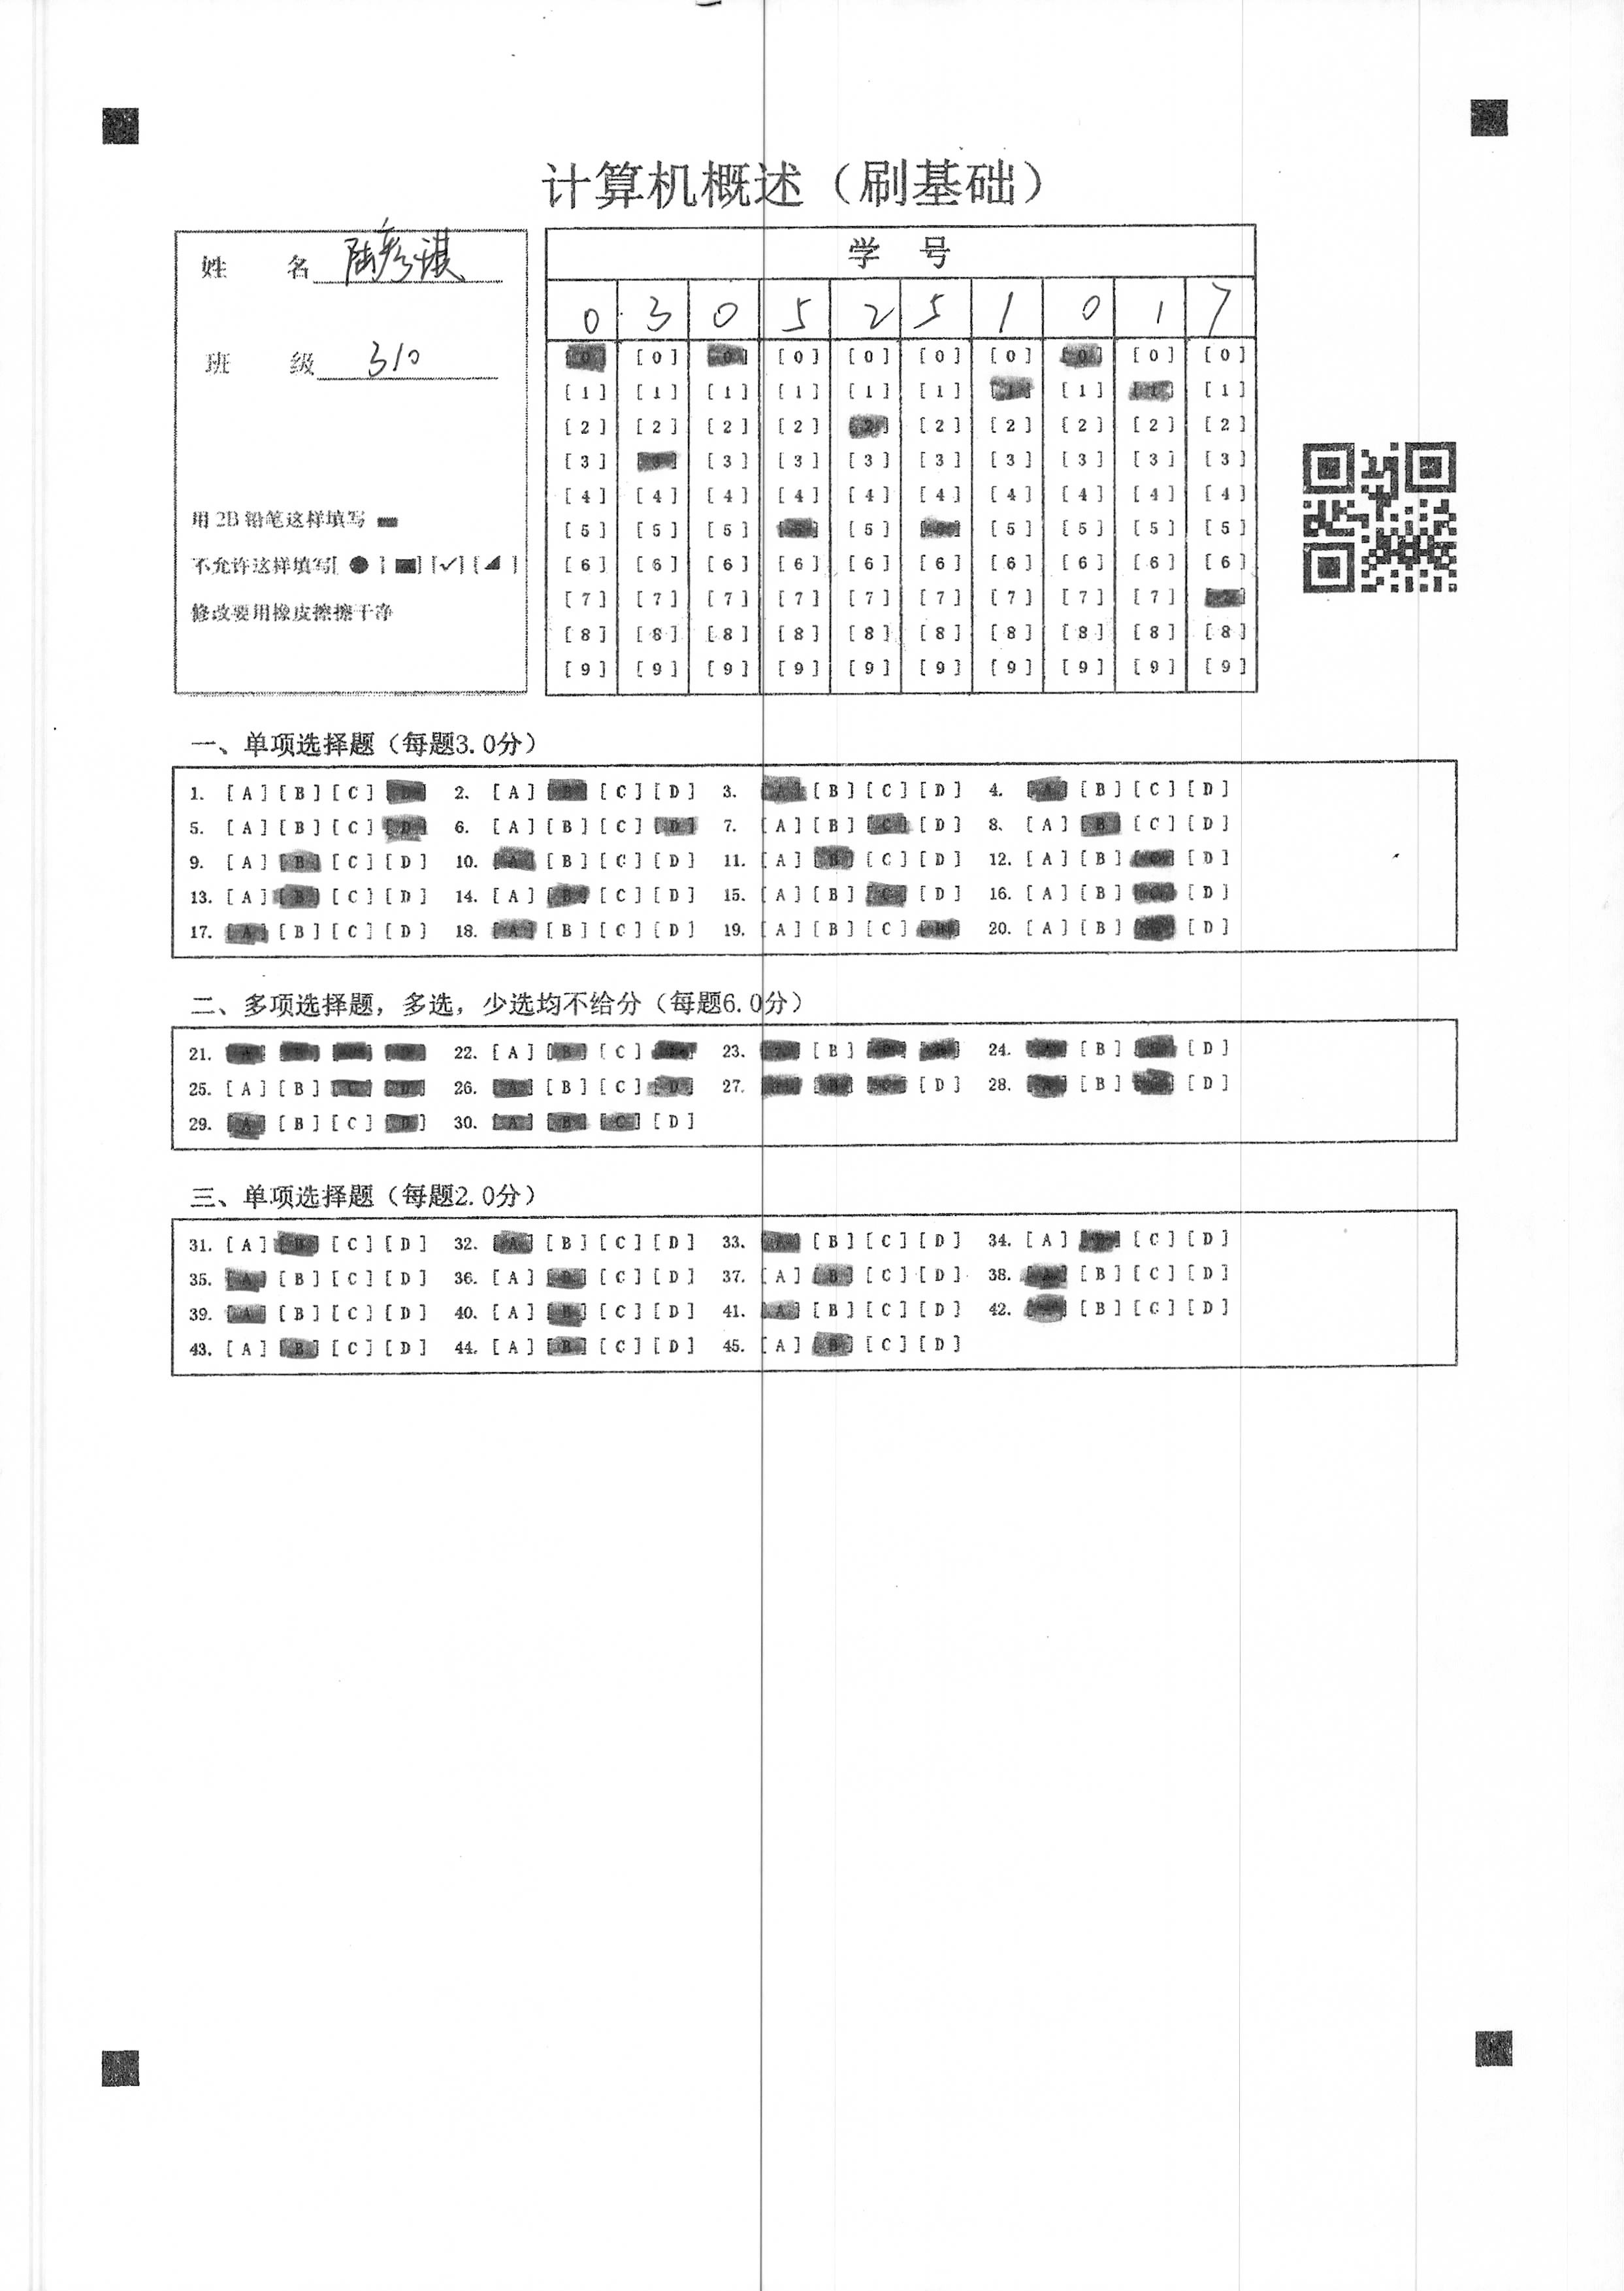 计算机概述（刷基础）
姓 名 陆彦祺
班 级 310
用2B铅笔这样填写
不允许这样填写[ ● ] [■] [✓] [◢ ]
修改要用橡皮擦擦干净
学 号
0 3 0 5 2 5 1 0 1 7
[0] [0] [0] [0] [0] [0] [0] [0] [0] [0]
[1] [1] [1] [1] [1] [1] [1] [1] [1] [1]
[2] [2] [2] [2] [2] [2] [2] [2] [2] [2]
[3] [3] [3] [3] [3] [3] [3] [3] [3] [3]
[4] [4] [4] [4] [4] [4] [4] [4] [4] [4]
[5] [5] [5] [5] [5] [5] [5] [5] [5] [5]
[6] [6] [6] [6] [6] [6] [6] [6] [6] [6]
[7] [7] [7] [7] [7] [7] [7] [7] [7] [7]
[8] [8] [8] [8] [8] [8] [8] [8] [8] [8]
[9] [9] [9] [9] [9] [9] [9] [9] [9] [9]
一、单项选择题（每题3.0分）
1. [A] [B] [C] [D] 2. [A] [B] [C] [D] 3. [A] [B] [C] [D] 4. [A] [B] [C] [D]
5. [A] [B] [C] [D] 6. [A] [B] [C] [D] 7. [A] [B] [C] [D] 8. [A] [B] [C] [D]
9. [A] [B] [C] [D] 10. [A] [B] [C] [D] 11. [A] [B] [C] [D] 12. [A] [B] [C] [D]
13. [A] [B] [C] [D] 14. [A] [B] [C] [D] 15. [A] [B] [C] [D] 16. [A] [B] [C] [D]
17. [A] [B] [C] [D] 18. [A] [B] [C] [D] 19. [A] [B] [C] [D] 20. [A] [B] [C] [D]
二、多项选择题，多选，少选均不给分（每题6.0分）
21. [A] [B] [C] [D] 22. [A] [B] [C] [D] 23. [A] [B] [C] [D] 24. [A] [B] [C] [D]
25. [A] [B] [C] [D] 26. [A] [B] [C] [D] 27. [A] [B] [C] [D] 28. [A] [B] [C] [D]
29. [A] [B] [C] [D] 30. [A] [B] [C] [D]
三、单项选择题（每题2.0分）
31. [A] [B] [C] [D] 32. [A] [B] [C] [D] 33. [A] [B] [C] [D] 34. [A] [B] [C] [D]
35. [A] [B] [C] [D] 36. [A] [B] [C] [D] 37. [A] [B] [C] [D] 38. [A] [B] [C] [D]
39. [A] [B] [C] [D] 40. [A] [B] [C] [D] 41. [A] [B] [C] [D] 42. [A] [B] [C] [D]
43. [A] [B] [C] [D] 44. [A] [B] [C] [D] 45. [A] [B] [C] [D]